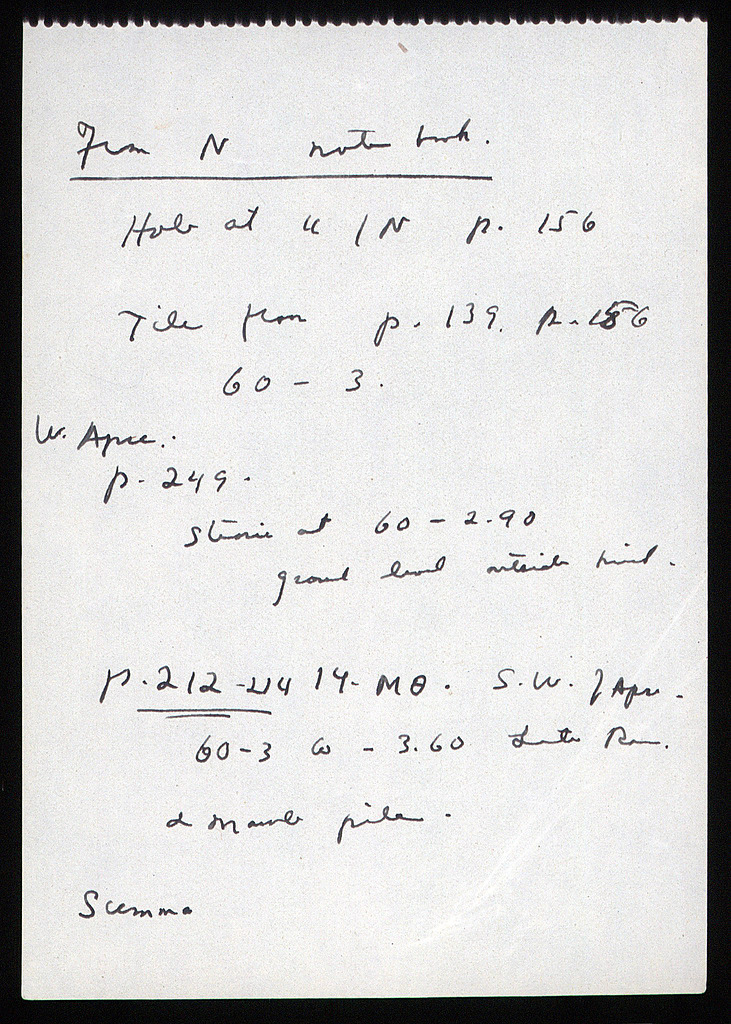 From N note book.
Hole at 1 N p. 156
Tile from p. 139. p. 156
60 - 3.
W. Apse.
p. 249.
at 60 - 2.90
ground level outside
p. 212 - 214 14 - ΜΘ. S.W. of Apse.
60 - 3 to - 3.60 Late Rom.
marble